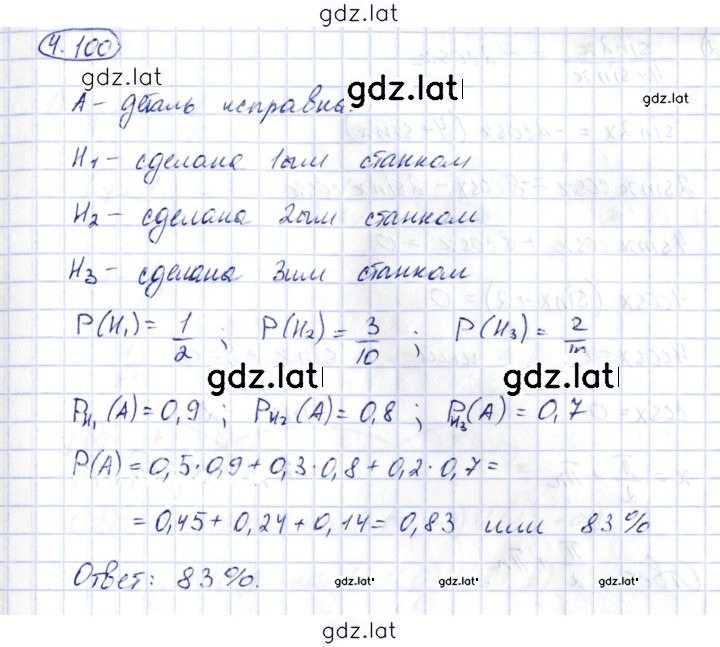 gdz.lat
4.100
gdz.lat
А – деталь исправна.
gdz.lat
gdz.lat
H₁ – сделана 1ым станком
H₂ – сделана 2ым станком
H₃ – сделана 3им станком
P(H₁) = 1/2 ; P(H₂) = 3/10 ; P(H₃) = 2/10
gdz.lat
gdz.lat
P_H₁(A) = 0,9 ; P_H₂(A) = 0,8 ; P_H₃(A) = 0,7
P(A) = 0,5·0,9 + 0,3·0,8 + 0,2·0,7 =
= 0,45 + 0,24 + 0,14 = 0,83 или 83%
Ответ: 83%.
gdz.lat
gdz.lat
gdz.lat
gdz.lat